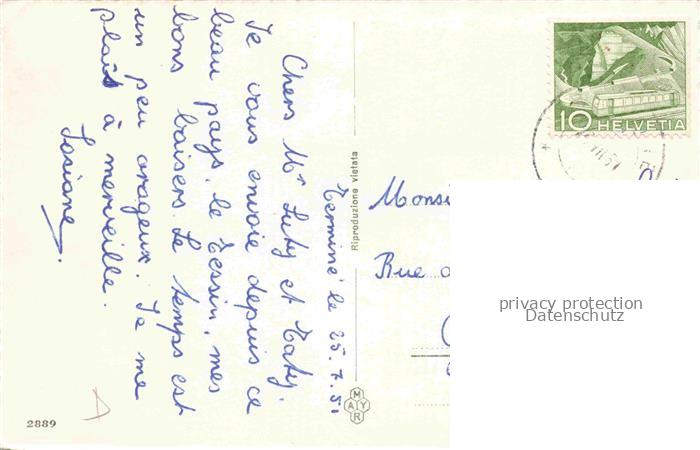 Terminé le 25.7.51
Chers Mr Luty et Taty.
Je vous envoie depuis ce
beau pays, le Tessin, mes
bons baisers. Le temps est
un peu orageux. Je me
plaît à merveille.
Josiane.
Riproduzione vietata
MAYR
2889
10 HELVETIA
Monsi
Rue
privacy protection
Datenschutz